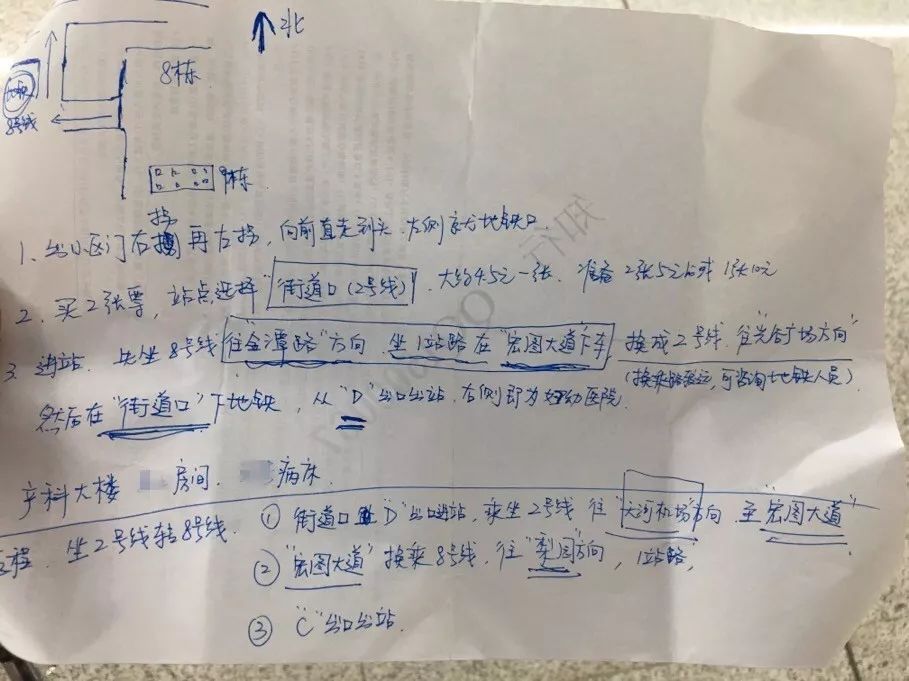 北
8栋
地铁
8号线
9栋
拐
1、出小区门右拐 再右拐,向前直走到头,左侧就为地铁口
2、买2张票,站点选择"街道口(2号线)",大约4.5元一张,准备2张5元的或1张10元
3、进站,先坐8号线"往金潭路"方向,坐1站路在"宏图大道"下车,换成2号线,往"光谷广场方向"
(换乘路程远,可咨询地铁人员)
然后在"街道口"下地铁,从"D"出口出站,右侧即为妇幼医院
产科大楼 房间, 病床.
返程,坐2号线转8号线. ① 街道口 "D"出口进站,乘坐2号线 往"天河机场"方向 至"宏图大道"
② "宏图大道"换乘8号线,往"梨园"方向,1站路,
③ "C"出口出站.